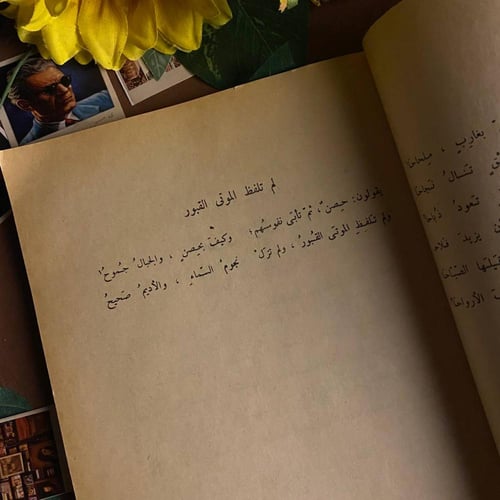 لم تلفظ الموتى القبور
يقولون: حِصنٌ، ثمّ تأبَى نفوسُهم؛ وكيفَ بحِصنٍ، والجبالُ جُموحُ!
ولم تلفظِ الموتَى القبورُ، ولم تزلْ نجومُ السّماءِ، والأديمُ صَحيحُ
بغاربٍ،
تعودُ
يزيدَ